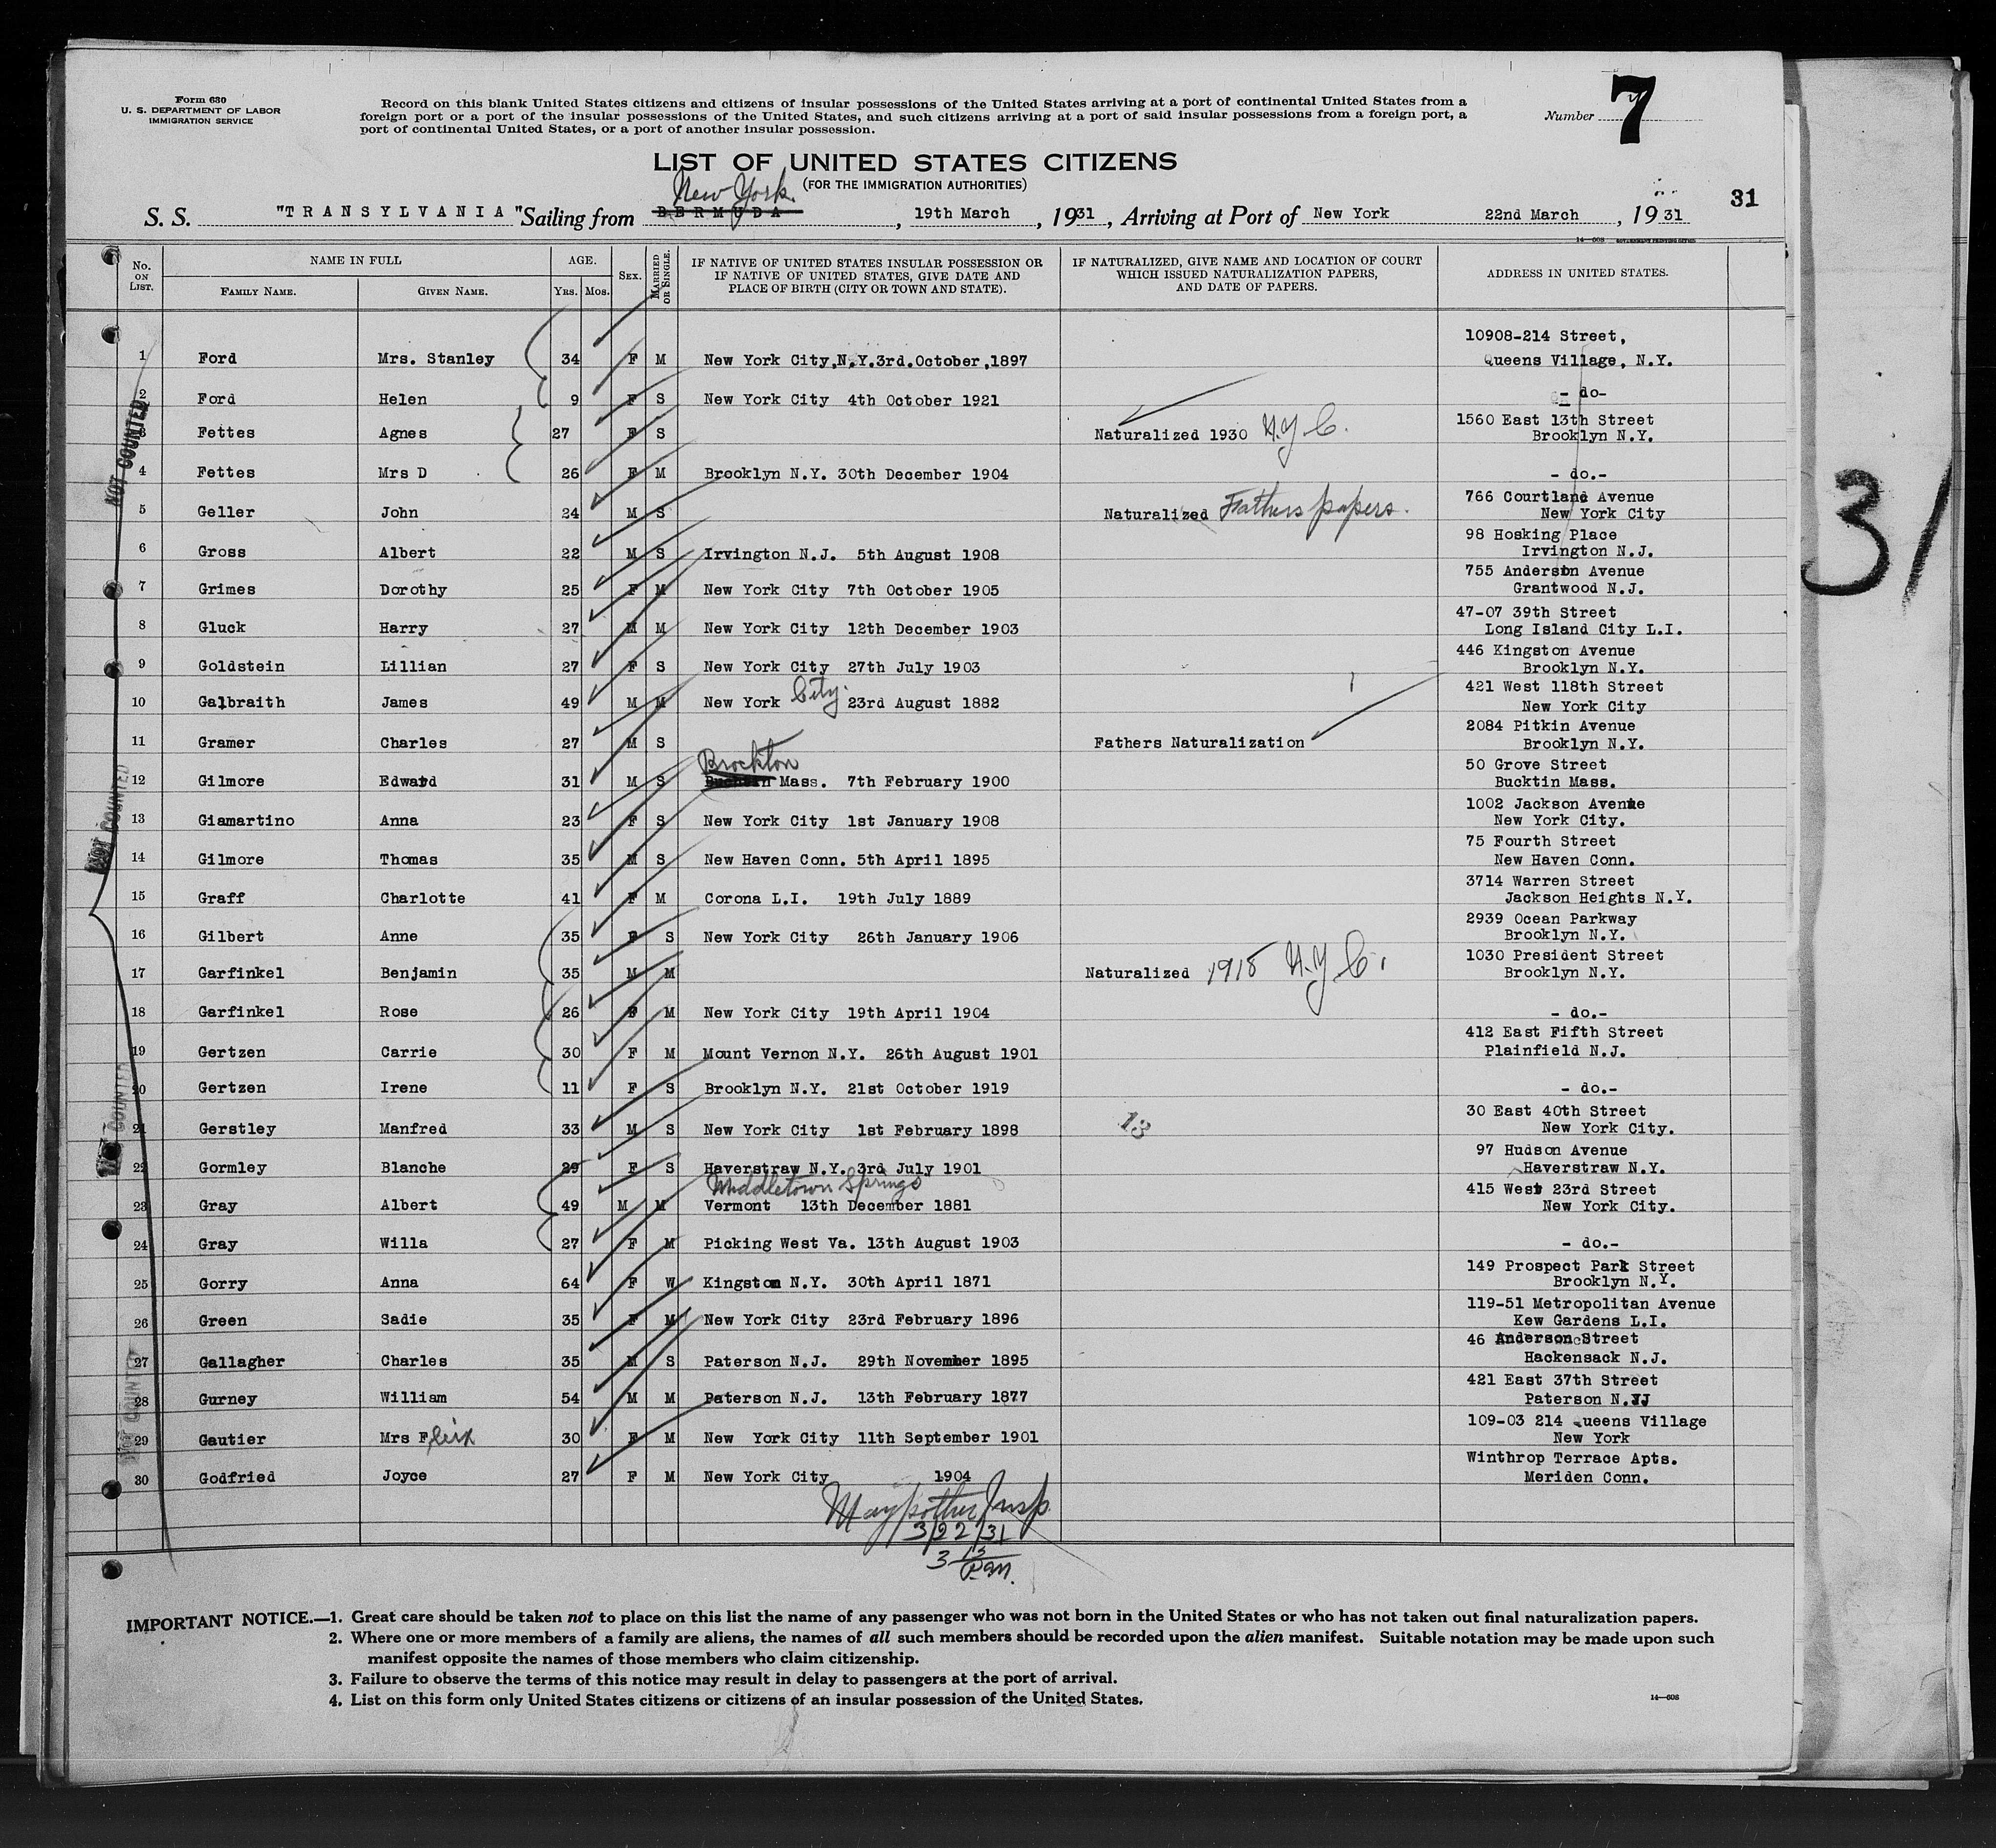 Form 630
U. S. DEPARTMENT OF LABOR
IMMIGRATION SERVICE
Record on this blank United States citizens and citizens of insular possessions of the United States arriving at a port of continental United States from a
foreign port or a port of the insular possessions of the United States, and such citizens arriving at a port of said insular possessions from a foreign port, a
port of continental United States, or a port of another insular possession.
Number 7
LIST OF UNITED STATES CITIZENS
(FOR THE IMMIGRATION AUTHORITIES)
New York.
31
S. S. "TRANSYLVANIA" Sailing from BERMUDA, 19th March, 1931, Arriving at Port of New York 22nd March, 1931
14—608 GOVERNMENT PRINTING OFFICE
No. ON LIST. NAME IN FULL FAMILY NAME. GIVEN NAME. AGE. Yrs. Mos. SEX. MARRIED OR SINGLE. IF NATIVE OF UNITED STATES INSULAR POSSESSION OR IF NATIVE OF UNITED STATES, GIVE DATE AND PLACE OF BIRTH (CITY OR TOWN AND STATE). IF NATURALIZED, GIVE NAME AND LOCATION OF COURT WHICH ISSUED NATURALIZATION PAPERS, AND DATE OF PAPERS. ADDRESS IN UNITED STATES.
10908-214 Street,
1 Ford Mrs. Stanley 34 F M New York City,N.Y.3rd.October,1897 Queens Village, N.Y.
2 Ford Helen 9 F S New York City 4th October 1921 - do-
1560 East 13th Street
3 Fettes Agnes 27 F S Naturalized 1930 N.Y.C. Brooklyn N.Y.
4 Fettes Mrs D 26 F M Brooklyn N.Y. 30th December 1904 - do.-
766 Courtland Avenue
5 Geller John 24 M S Naturalized Fathers papers. New York City
98 Hosking Place
6 Gross Albert 22 M S Irvington N.J. 5th August 1908 Irvington N.J.
755 Anderson Avenue
7 Grimes Dorothy 25 F M New York City 7th October 1905 Grantwood N.J.
47-07 39th Street
8 Gluck Harry 27 M M New York City 12th December 1903 Long Island City L.I.
446 Kingston Avenue
9 Goldstein Lillian 27 F S New York City 27th July 1903 Brooklyn N.Y.
421 West 118th Street
10 Galbraith James 49 M M New York City. 23rd August 1882 New York City
2084 Pitkin Avenue
11 Gramer Charles 27 M S Fathers Naturalization Brooklyn N.Y.
Brockton 50 Grove Street
12 Gilmore Edward 31 M S Mass. 7th February 1900 Bucktin Mass.
1002 Jackson Avenue
13 Giamartino Anna 23 F S New York City 1st January 1908 New York City.
75 Fourth Street
14 Gilmore Thomas 35 M S New Haven Conn. 5th April 1895 New Haven Conn.
3714 Warren Street
15 Graff Charlotte 41 F M Corona L.I. 19th July 1889 Jackson Heights N.Y.
2939 Ocean Parkway
16 Gilbert Anne 35 F S New York City 26th January 1906 Brooklyn N.Y.
1030 President Street
17 Garfinkel Benjamin 35 M M Naturalized 1918 N.Y.C. Brooklyn N.Y.
18 Garfinkel Rose 26 F M New York City 19th April 1904 - do.-
412 East Fifth Street
19 Gertzen Carrie 30 F M Mount Vernon N.Y. 26th August 1901 Plainfield N.J.
20 Gertzen Irene 11 F S Brooklyn N.Y. 21st October 1919 - do.-
30 East 40th Street
21 Gerstley Manfred 33 M S New York City 1st February 1898 13 New York City.
97 Hudson Avenue
22 Gormley Blanche 29 F S Haverstraw N.Y. 3rd July 1901 Haverstraw N.Y.
Middletown Springs 415 West 23rd Street
23 Gray Albert 49 M M Vermont 13th December 1881 New York City.
24 Gray Willa 27 F M Picking West Va. 13th August 1903 - do.-
149 Prospect Park Street
25 Gorry Anna 64 F W Kingston N.Y. 30th April 1871 Brooklyn N.Y.
119-51 Metropolitan Avenue
26 Green Sadie 35 F M New York City 23rd February 1896 Kew Gardens L.I.
46 Anderson Street
27 Gallagher Charles 35 M S Paterson N.J. 29th November 1895 Hackensack N.J.
421 East 37th Street
28 Gurney William 54 M M Paterson N.J. 13th February 1877 Paterson N.J
109-03 214 Queens Village
29 Gautier Mrs Felix 30 F M New York City 11th September 1901 New York
Winthrop Terrace Apts.
30 Godfried Joyce 27 F M New York City 1904 Meriden Conn.
Maypother Insp
3/22/31
3 15 P.M.
NOT COUNTED
NOT COUNTED
NOT COUNTED
NOT COUNTED
31
IMPORTANT NOTICE.—1. Great care should be taken not to place on this list the name of any passenger who was not born in the United States or who has not taken out final naturalization papers.
2. Where one or more members of a family are aliens, the names of all such members should be recorded upon the alien manifest. Suitable notation may be made upon such
manifest opposite the names of those members who claim citizenship.
3. Failure to observe the terms of this notice may result in delay to passengers at the port of arrival.
4. List on this form only United States citizens or citizens of an insular possession of the United States.
14—608